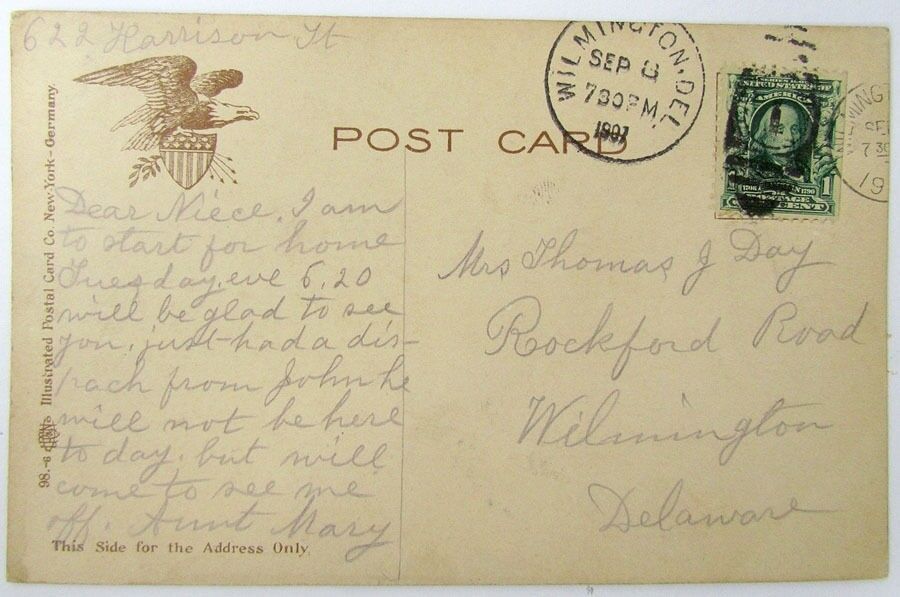 622 Harrison St
POST CARD
WILMINGTON, DEL.
SEP 8
730 PM
1907
SERIES 1902
UNITED STATES OF
AMERICA
1706 FRANKLIN 1790
POSTAGE
1
CENT
WILMING
SE
7 30
19
Dear Niece, I am
to start for home
Tuesday. eve 6.20
will be glad to see
you, just had a dis-
pach from John he
will not be here
to day. but will
come to see me
off. Aunt Mary
Mrs Thomas J Day
Rockford Road
Wilmington
Delaware
Illustrated Postal Card Co. New-York - Germany.
This Side for the Address Only.